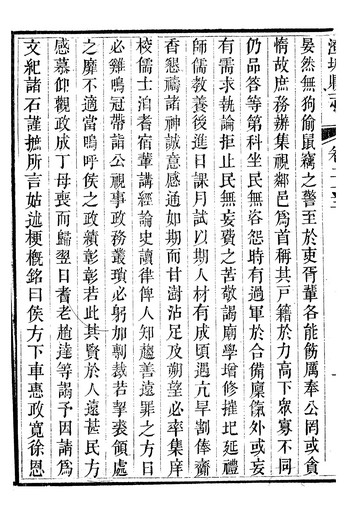 晏然無狗偷鼠竊之警至於吏胥輩各能飭厲奉公罔或貪
惰故庶務辦集視鄰邑為首稱其戸籍於力高下眾寡不同
仍品答等第科坐民無容怨時有過軍於合備廩餼外或妄
有需求執論拒止民無妄費之苦敬謁廟學增修摧圯延禮
師儒教養後進日課月試以期人材有成頃遇亢旱割俸齋
香懇禱諸神誠意感通如期而甘澍沾足及朔望必率集庠
校儒士洎耆宿輩講經論史讀律俾人知趨善遠罪之方日
必雞鳴冠帶詣公視事政務叢瑣必躬加剸裁若挈裘領處
之靡不適當嗚呼侯之政績彰彰若此其賢於人遠甚民方
感慕仰觀政成丁母喪而歸翌日耆老趙達等謁予因請為
文紀諸石謹摭所言姑述梗概銘曰侯方下車惠政寬徐恩